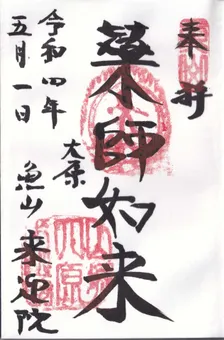 奉拝
薬師如来
大原
魚山 来迎院
令和四年
五月一日